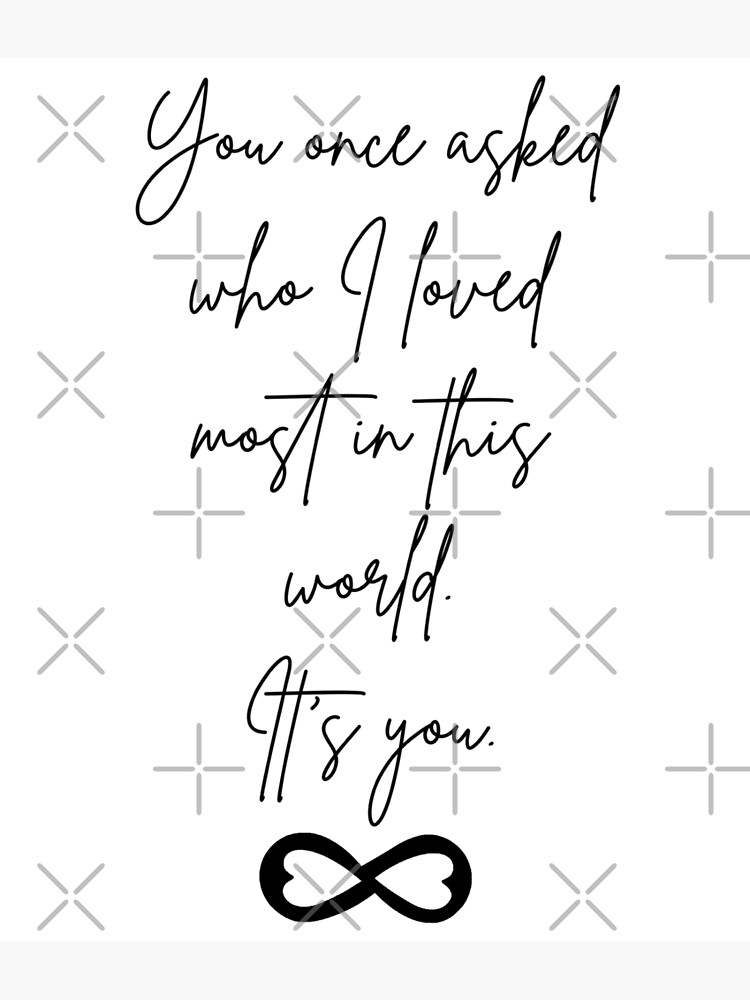 You once asked
who I loved
most in this
world.
It's you.